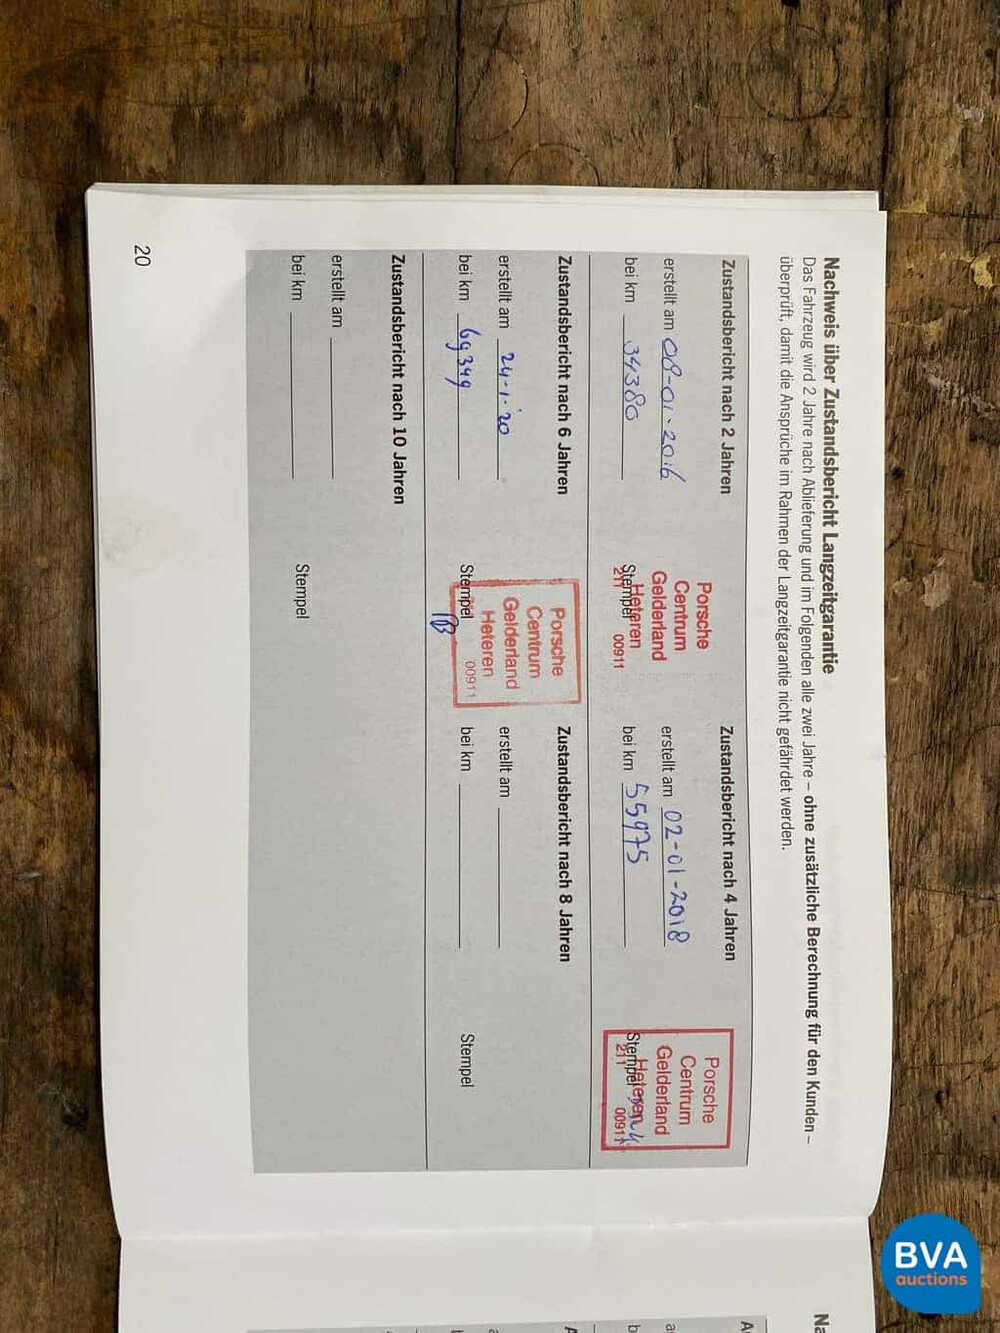 Nachweis über Zustandsbericht Langzeitgarantie
Das Fahrzeug wird 2 Jahre nach Ablieferung und im Folgenden alle zwei Jahre – ohne zusätzliche Berechnung für den Kunden –
überprüft, damit die Ansprüche im Rahmen der Langzeitgarantie nicht gefährdet werden.
Zustandsbericht nach 2 Jahren
erstellt am 08-01-2016
bei km 34380
Stempel
Porsche
Centrum
Gelderland
Heteren
211 00911
Zustandsbericht nach 4 Jahren
erstellt am 02-01-2018
bei km 55975
Stempel
Porsche
Centrum
Gelderland
Heteren
211 00911
Zustandsbericht nach 6 Jahren
erstellt am 24-1-'20
bei km 69349
Stempel
Porsche
Centrum
Gelderland
Heteren
00911
Zustandsbericht nach 8 Jahren
erstellt am
bei km
Stempel
Zustandsbericht nach 10 Jahren
erstellt am
bei km
Stempel
20
BVA
auctions